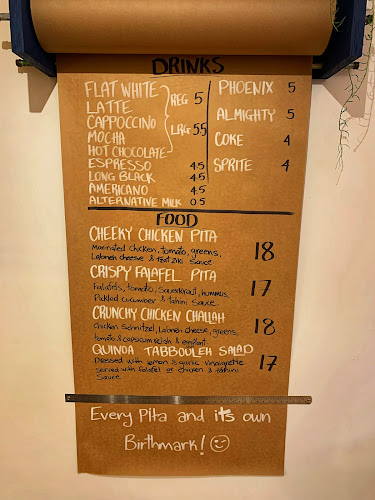 DRINKS
FLAT WHITE
LATTE
CAPPOCCINO
MOCHA
HOT CHOCOLATE
REG 5
LRG 5.5
ESPRESSO 4.5
LONG BLACK 4.5
AMERICANO 4.5
ALTERNATIVE MILK 0.5
PHOENIX 5
ALMIGHTY 5
COKE 4
SPRITE 4
FOOD
CHEEKY CHICKEN PITA 18
Marinated chicken, tomato, greens,
Labneh cheese & tzatziki Sauce
CRISPY FALAFEL PITA 17
Falafels, tomato, Sauerkraut, hummus,
Pickled cucumber & tahini Sauce.
CRUNCHY CHICKEN CHALLAH 18
Chicken schnitzel, Labneh cheese, greens,
tomato & capsicum relish & eggplant.
QUINOA TABBOULEH SALAD 17
Dressed with lemon & garlic vinaigrette
served with falafel or chicken & tahini
Sauce
Every Pita and its own
Birthmark!